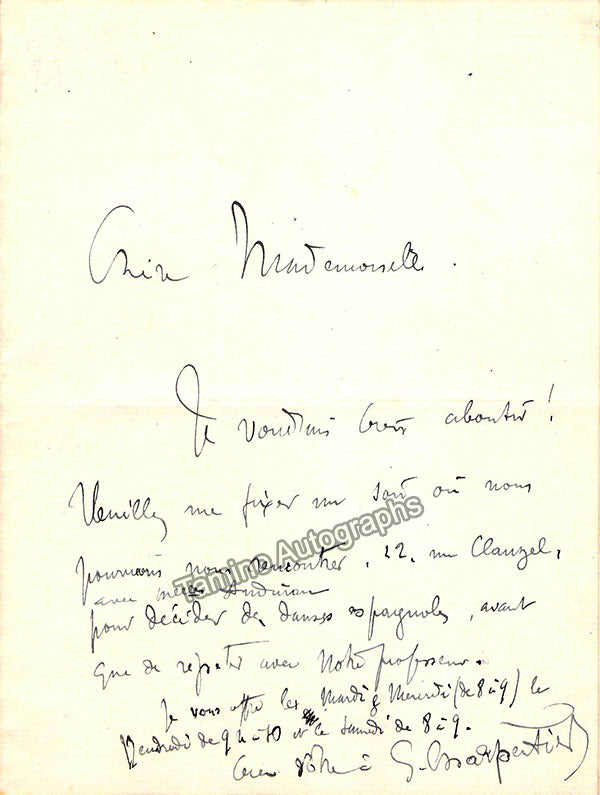 Chère Mademoiselle.
Je voudrais bien aboutir!
Veuillez me fixer un soir où nous
pourrions nous rencontrer, 22, rue Clauzel,
avec
Tamino Autographs
pour décider des danses espagnoles, avant
que de répéter avec Notre professeur.
Je vous offre les Mardi & Mercredi (de 8 à 9) le
Vendredi de 9 h à 10 et le Samedi de 8 à 9.
bien vôtre à G. Charpentier